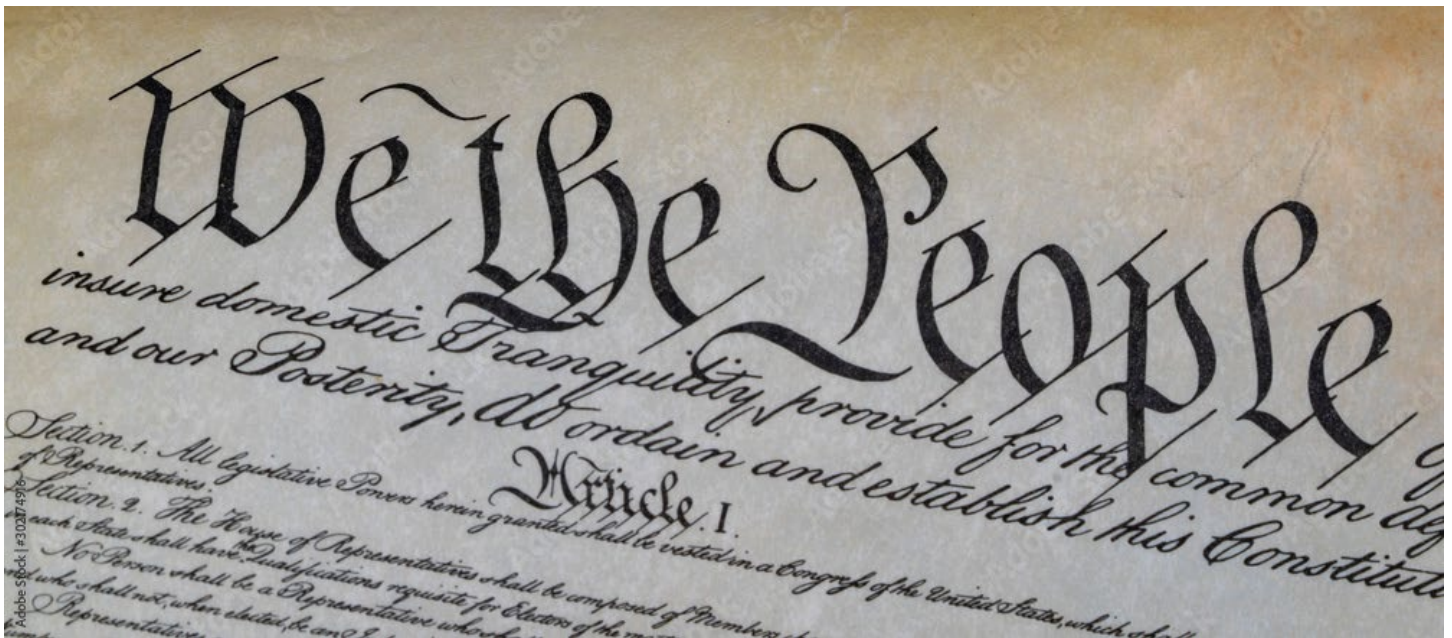 We the People
insure domestic Tranquility, provide for the common def
and our Posterity, do ordain and establish this Constituti
Article. I.
Section. 1. All legislative Powers herein granted shall be vested in a Congress of the United States, which shall
of Representatives.
Section. 2. The House of Representatives shall be composed of Members
in each State shall have the Qualifications requisite for Electors of the most
No Person shall be a Representative who shall
and who shall not, when elected, be an I
Representatives
Adobe Stock | #302174916